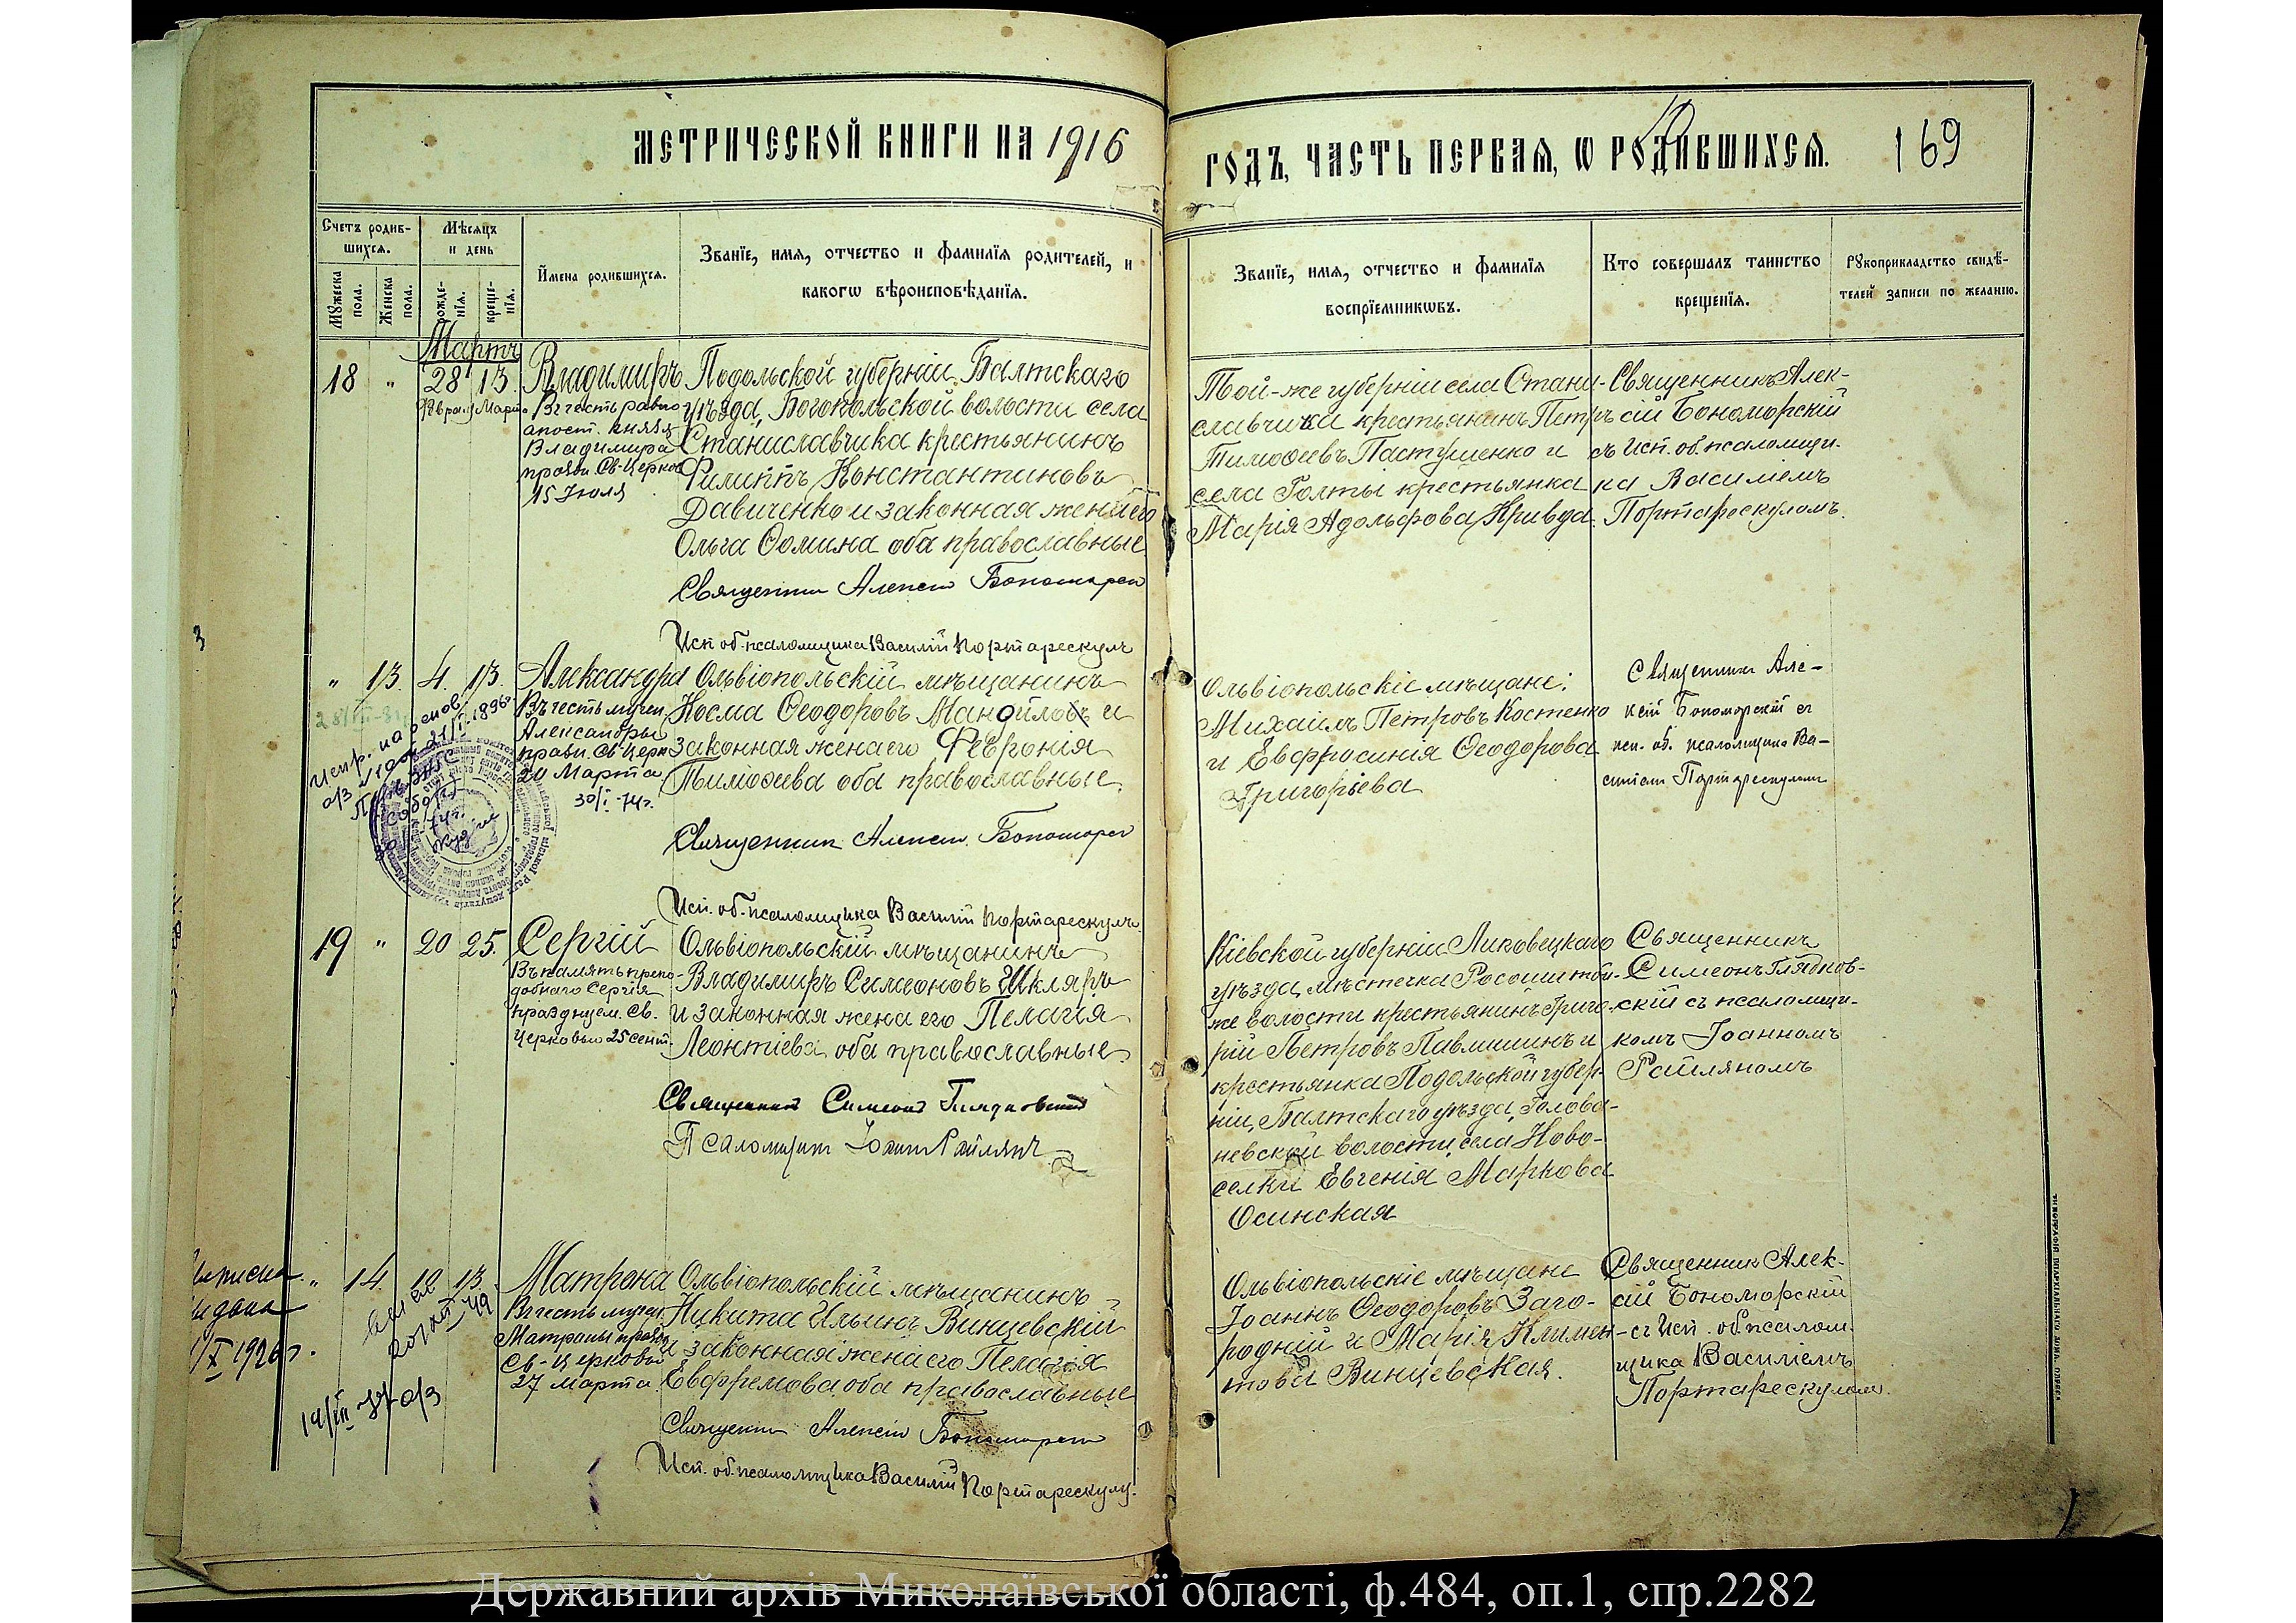 МЕТРИЧЕСКОЙ КНИГИ НА 1916
ГОДЪ, ЧАСТЬ ПЕРВАЯ, Ѡ РОДИВШИХСЯ. 169
Счетъ родив-
шихся.
Мѣсяцъ
и день
Мужеска
пола.
Женска
пола.
рожде-
нія.
креще-
нія.
Имена родившихся.
Званїе, имя, отчество и фамилїя родителей, и
какогѡ вѣроисповѣданїя.
Званїе, имя, отчество и фамилїя
воспрїемникѡвъ.
Кто совершалъ таинство
крещенїя.
Рукоприкладство свидѣ-
телей записи по желанію.
Мартъ
18 " 28 13. Владимиръ
Февраля Марта
Въ честь равно-
апост. князя
Владимира
празн. Св. Церков
15 Іюля
Подольской губерніи Балтскаго
уѣзда, Богопольской волости села
Станиславчика крестьянинъ
Филиппъ Константиновъ
Давиченко и законная жена его
Ольга Ѳомина оба православные
Священник Алексій Бономорск
Исп. об. псаломщика Василій Портарескулъ
Той-же губерніи села Стани-
славчика крестьянинъ Петръ
Тимоѳеевъ Пастушенко и
села Голты крестьянка
Марія Адольфова Кривда
Священникъ Алек-
сій Бономорскій
съ Исп. об. псаломщи-
ка Василіемъ
Портарескуломъ.
" 13. 4. 13. Александра
Въ честь мучен.
Александры
празн. Св. Церк.
20 Марта
30/I-74г.
Ольвіопольскій мѣщанинъ
Косма Ѳеодоровъ Манойловъ и
законная жена его Февронія
Тимоѳеева оба православные.
Священник Алексій Бономорск
Исп. об. псаломщика Василій Портарескулъ.
Ольвіопольскіе мѣщане:
Михаилъ Петровъ Костенко
и Евфросинія Ѳеодорова
Григорьева
Священник Але-
ксій Бономорскій съ
исп. об. псаломщика Ва-
силіем Портарескулом
19 " 20 25. Сергій
Въ память препо-
добнаго Сергія
празднуем. Св.
Церковью 25 сент.
Ольвіопольскій мѣщанинъ
Владимиръ Симеоновъ Шкляръ
и законная жена его Пелагія
Леонтіева оба православные.
Священникъ Симеонъ Глядковскій
Псаломщикъ Іоаннъ Райлянъ
Кіевской губерніи Липовецкаго
уѣзда, мѣстечка Росоши той-
же волости крестьянинъ Григо-
рій Петровъ Павлишинъ и
крестьянка Подольской губер-
ніи, Балтскаго уѣзда, Голова-
невской волости, села Ново-
селки Евгенія Маркова
Осинская
Священникъ
Симеонъ Глядков-
скій съ псаломщи-
комъ Іоанномъ
Райляномъ
" 14. 12 13 Матрона
Въ честь мучен.
Матроны празн.
Св. Церковью
27 Марта
Ольвіопольскій мѣщанинъ
Никита Ильинъ Винцевскій
и законная жена его Пелагія
Евфремова, оба православные
Священник Алексій Бономорскій
Исп. об. псаломщика Василій Портарескулъ.
Ольвіопольскіе мѣщане
Іоаннъ Ѳеодоровъ Заго-
родній и Марія Климен-
това Винцевская.
Священник Алек-
сій Бономорскій
съ Исп. об. псалом-
щика Василіемъ
Портарескулом.
Выписка
выдана
X 1926 г.
Державний архів Миколаївської області, ф.484, оп.1, спр.2282